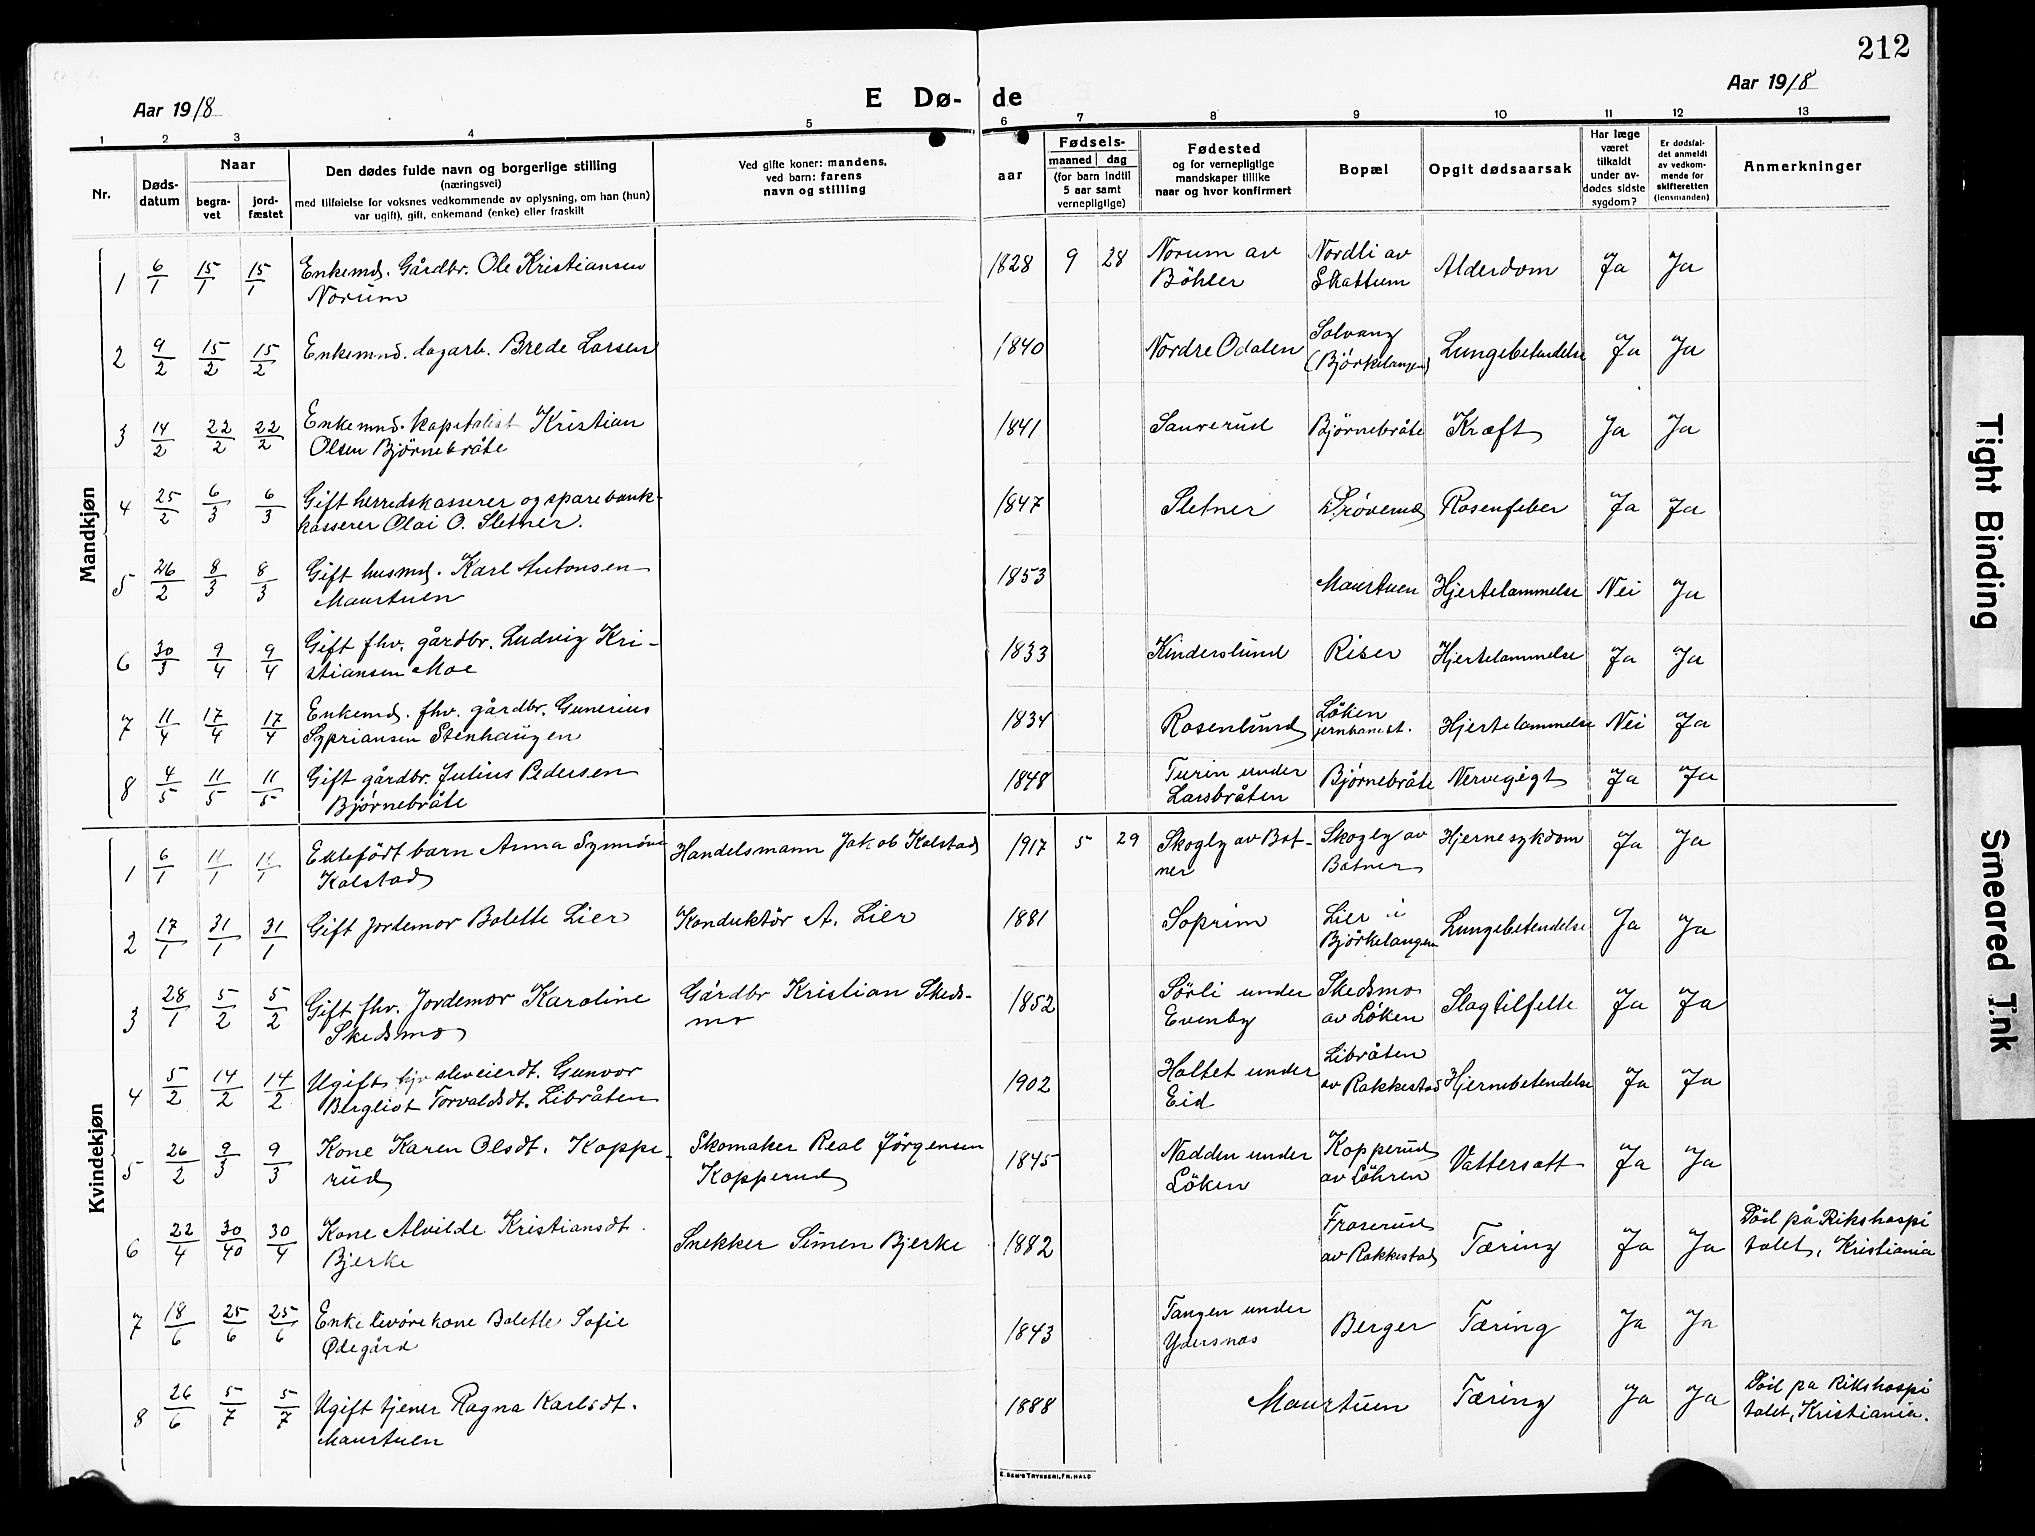 212
Aar 1918
E Dø-
de
Aar 1918
1 2 3 4 5 6 7 8 9 10 11 12 13
Nr.
Døds-
datum
Naar
begra-
vet
jord-
fæstet
Den dødes fulde navn og borgerlige stilling
(næringsvei)
med tilføielse for voksnes vedkommende av oplysning, om han (hun)
var ugift), gift, enkemand (enke) eller fraskilt
Ved gifte koner: mandens,
ved barn: farens
navn og stilling
aar
Fødsels-
maaned dag
(for barn indtil
5 aar samt
vernepligtige)
Fødested
og for vernepligtige
mandskaper tillike
naar og hvor konfirmert
Bopæl
Opgit dødsaarsak
Har læge
været
tilkaldt
under av-
dødes sidste
sygdom?
Er dødsfal-
det anmeldt
av vedkom-
mende for
skifteretten
(lensmanden)
Anmerkninger
Mandkjøn
1 6/1 15/1 15/1 Enkemd. Gårdbr. Ole Kristiansen
Norum
1828 9 28 Norum av
Böhler
Nordli av
Skattum
Alderdom Ja Ja
2 9/2 15/2 15/2 Enkemnd. dagarb. Brede Larsen
1840 Nordre Odalen
Solvang
(Björkelangen)
Lungebetendelse Ja Ja
3 14/2 22/2 22/2 Enkemnd. kapitalist Kristian
Olsen Bjørnebråte
1841 Saurerud Bjørnebråte Kræft Ja Ja
4 25/2 6/3 6/3 Gift herredskasserer og sparebank-
kasserer Olai O. Sletner.
1847 Sletner Rosenfeber Ja Ja
5 26/2 8/3 8/3 Gift husmd. Karl Antonsen
Maurtuen
1853 Maurtuen Hjertelammelse Nei Ja
6 30/3 9/4 9/4 Gift fhv. gårdbr. Ludvig Kri-
stiansen Moe
1833 Kinderslund Riser Hjertelammelse Ja Ja
7 11/4 17/4 17/4 Enkemd. fhv. gårdbr. Gunerius
Sypriansen Stenhaugen
1834 Rosenlund
Löken
jernbanest.
Hjertelammelse Nei Ja
8 4/5 11/5 11/5 Gift gårdbr. Julius Pedersen
Bjørnebråte
1848 Turin under
Larsbråten
Bjørnebråte Nervegigt Ja Ja
Kvindekjøn
1 6/1 11/1 11/1 Ektefödt barn Anna Synnöve
Kolstad
Handelsmann Jakob Kolstad
1917 5 29 Skogly av Bot-
ner
Skogly av
Botner
Hjernesykdom Ja Ja
2 17/1 31/1 31/1 Gift Jordemor Bolette Lier
Konduktör A. Lier
1881 Soprim
Lier i
Björkelangen
Lungebetendelse Ja Ja
3 28/1 5/2 5/2 Gift fhv. Jordemor Karoline
Skedsmo
Gårdbr Kristian Skeds-
mo
1852 Sörli under
Evenby
Skedsmo
av Löken
Slagtilfelle Ja Ja
4 5/2 14/2 14/2 Ugift Gunvor
Bergliot Torvaldsdt. Libråten
1902 Holtet under
Eid
Libråten
av Rakkestad
Hjernebetendelse Ja Ja
5 26/2 9/3 9/3 Kone Karen Olsdt. Koppe-
rud
Skomaker Real Jörgensen
Kopperud
1845 Nadden under
Löken
Kopperud
av Löhren
Vattersott Ja Ja
6 22/4 30/40 30/4 Kone Alvilde Kristiansdt.
Bjerke
Snekker Simen Bjerke
1882
Froserud
av Rakkestad
Tæring Ja Ja
Död på Rikshospi
talet, Kristiania
7 18/6 25/6 25/6 Enke livörekone Bolette Sofie
Ødegård
1843 Tangen under
Ydersnes
Berger Tæring Ja Ja
8 26/6 5/7 5/7 Ugift tjener Ragna Karlsdt.
Maurtuen
1888 Maurtuen Tæring Ja Ja
Död pa Rikshospi
talet, Kristiania.
E. SEM'S TRYKKERI, FR.HALD
Tight Binding
Smeared Ink